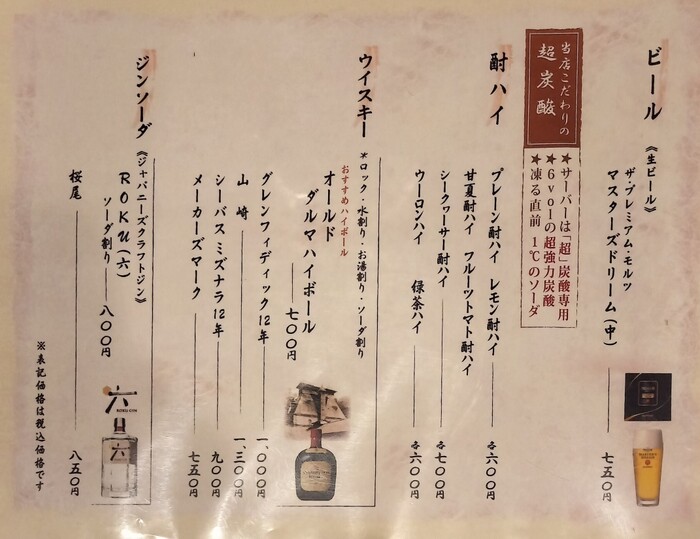 ビール
《生ビール》
ザ・プレミアム・モルツ
マスターズドリーム(中) 七五〇円
当店こだわりの
超炭酸
★サーバーは「超」炭酸専用
★6volの超強力炭酸
★凍る直前 1℃のソーダ
酎ハイ
プレーン酎ハイ レモン酎ハイ 各六〇〇円
甘夏酎ハイ フルーツトマト酎ハイ
シークヮーサー酎ハイ 各七〇〇円
ウーロンハイ 緑茶ハイ 各六〇〇円
ウイスキー
*ロック・水割り・お湯割り・ソーダ割り
おすすめハイボール
オールド
ダルマハイボール
七〇〇円
グレンフィディック12年 一、〇〇〇円
山崎 一、三〇〇円
シーバスミズナラ12年 九〇〇円
メーカーズマーク 七五〇円
ジンソーダ
《ジャパニーズクラフトジン》
ROKU(六)
ソーダ割り 八〇〇円
六
ROKU GIN
六
桜尾 八五〇円
※表記価格は税込価格です